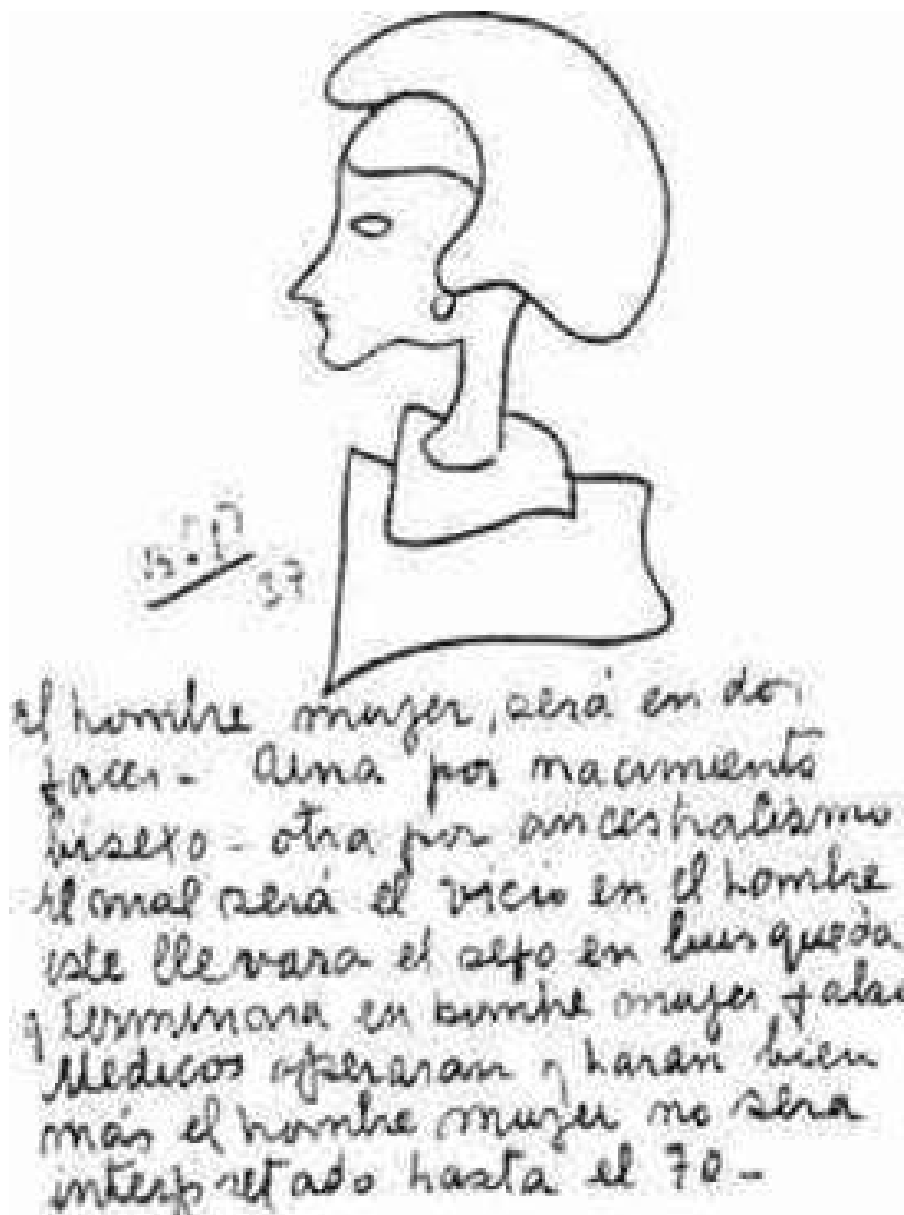 El hombre mujer, será en dos
faces - Una por nacimiento
bisexo - otra por ancestralismo
El mal será el vicio en el hombre
este llevara el sexo en busqueda
y terminara en hombre mujer falso
Medicos operaran y haran bien
más el hombre mujer no sera
interpretado hasta el 70 -